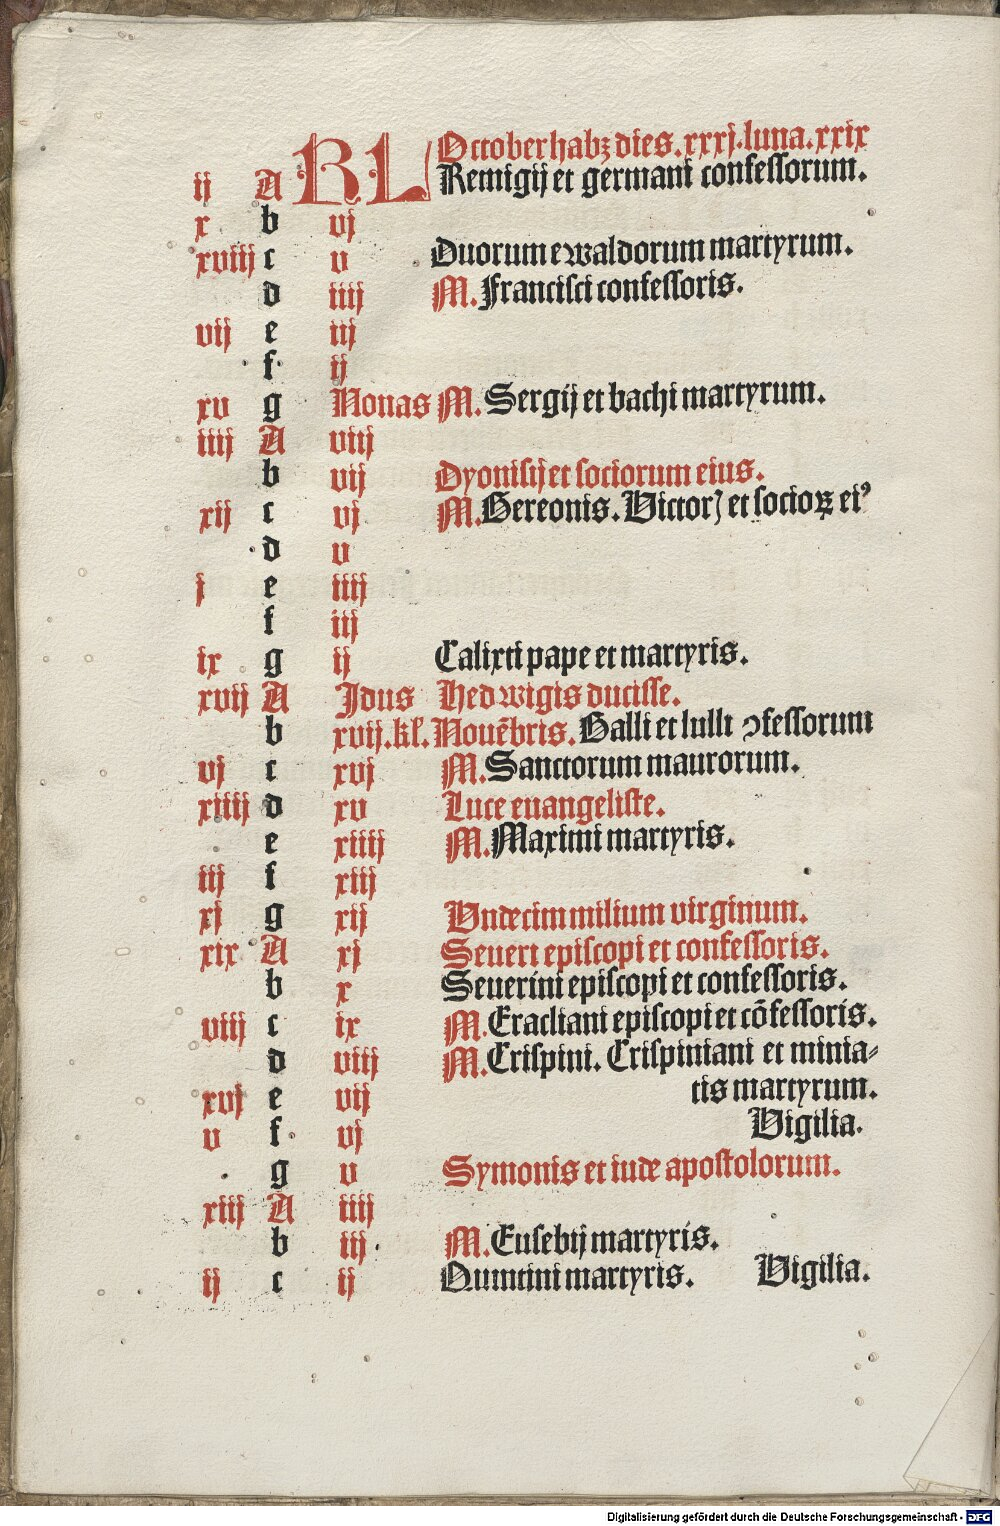 October habꝫ dies. xxxj. luna. xxix
ij A KL Remigij et germani confessorum.
x b vj
xviij c v Duorum ewaldorum martyrum.
d iiij M. Francisci confessoris.
vij e iij
f ij
xv g Nonas M. Sergij et bachi martyrum.
iiij A viij
b vij Dyonisij et sociorum eius.
xij c vj M. Gereonis. Victorꝭ et socioꝝ eiꝰ
d v
j e iiij
f iij
ix g ij Calixti pape et martyris.
xvij A Jdus Hedwigis ducisse.
b xvij. kl. Nouēbris. Galli et lulli ↄfessorum
vj c xvj M. Sanctorum maurorum.
xiiij d xv Luce euangeliste.
e xiiij M. Maximi martyris.
iij f xiij
xj g xij Vndecim milium virginum.
xix A xj Seueri episcopi et confessoris.
b x Seuerini episcopi et confessoris.
viij c ix M. Eracliani episcopi et cōfessoris.
d viij M. Crispini. Crispiniani et minia⸗
tis martyrum.
xvj e vij
v f vj Vigilia.
g v Symonis et iude apostolorum.
xiij A iiij
b iij M. Eusebij martyris.
ij c ij Quintini martyris. Vigilia.
Digitalisierung gefördert durch die Deutsche Forschungsgemeinschaft - DFG